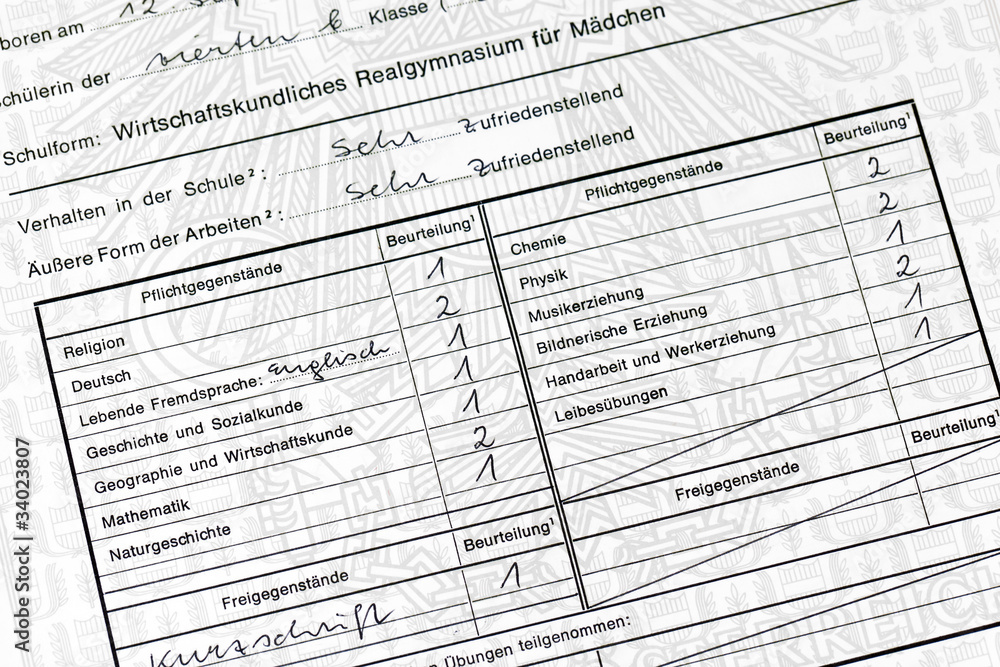 boren am 12. Sep
chülerin der vierten b Klasse (
Schulform: Wirtschaftskundliches Realgymnasium für Mädchen
Verhalten in der Schule²: sehr zufriedenstellend
Äußere Form der Arbeiten²: sehr zufriedenstellend
Pflichtgegenstände Beurteilung¹
Religion 1
Deutsch 2
Lebende Fremdsprache: Englisch 1
Geschichte und Sozialkunde 1
Geographie und Wirtschaftskunde 1
Mathematik 2
Naturgeschichte 1
Freigegenstände Beurteilung¹
Kurzschrift 1
Pflichtgegenstände Beurteilung¹
Chemie 2
Physik 2
Musikerziehung 1
Bildnerische Erziehung 2
Handarbeit und Werkerziehung 1
Leibesübungen 1
Freigegenstände Beurteilung¹
n Übungen teilgenommen:
Adobe Stock | #34023807